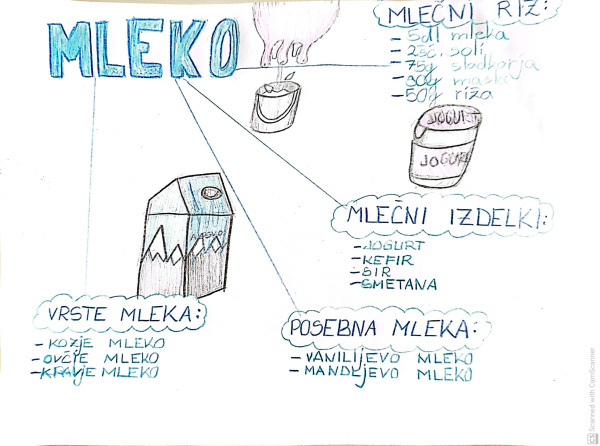 MLEKO
MLEČNI RIŽ:
- 5dl mleka
- 2šč. soli
- 75g sladkorja
- 30g masla
- 50g riža
JOGURT
JOGURT
MLEČNI IZDELKI:
- JOGURT
- KEFIR
- SIR
- SMETANA
VRSTE MLEKA:
- KOZJE MLEKO
- OVČJE MLEKO
- KRAVJE MLEKO
POSEBNA MLEKA:
- VANILIJEVO MLEKO
- MANDLJEVO MLEKO
Scanned with CamScanner